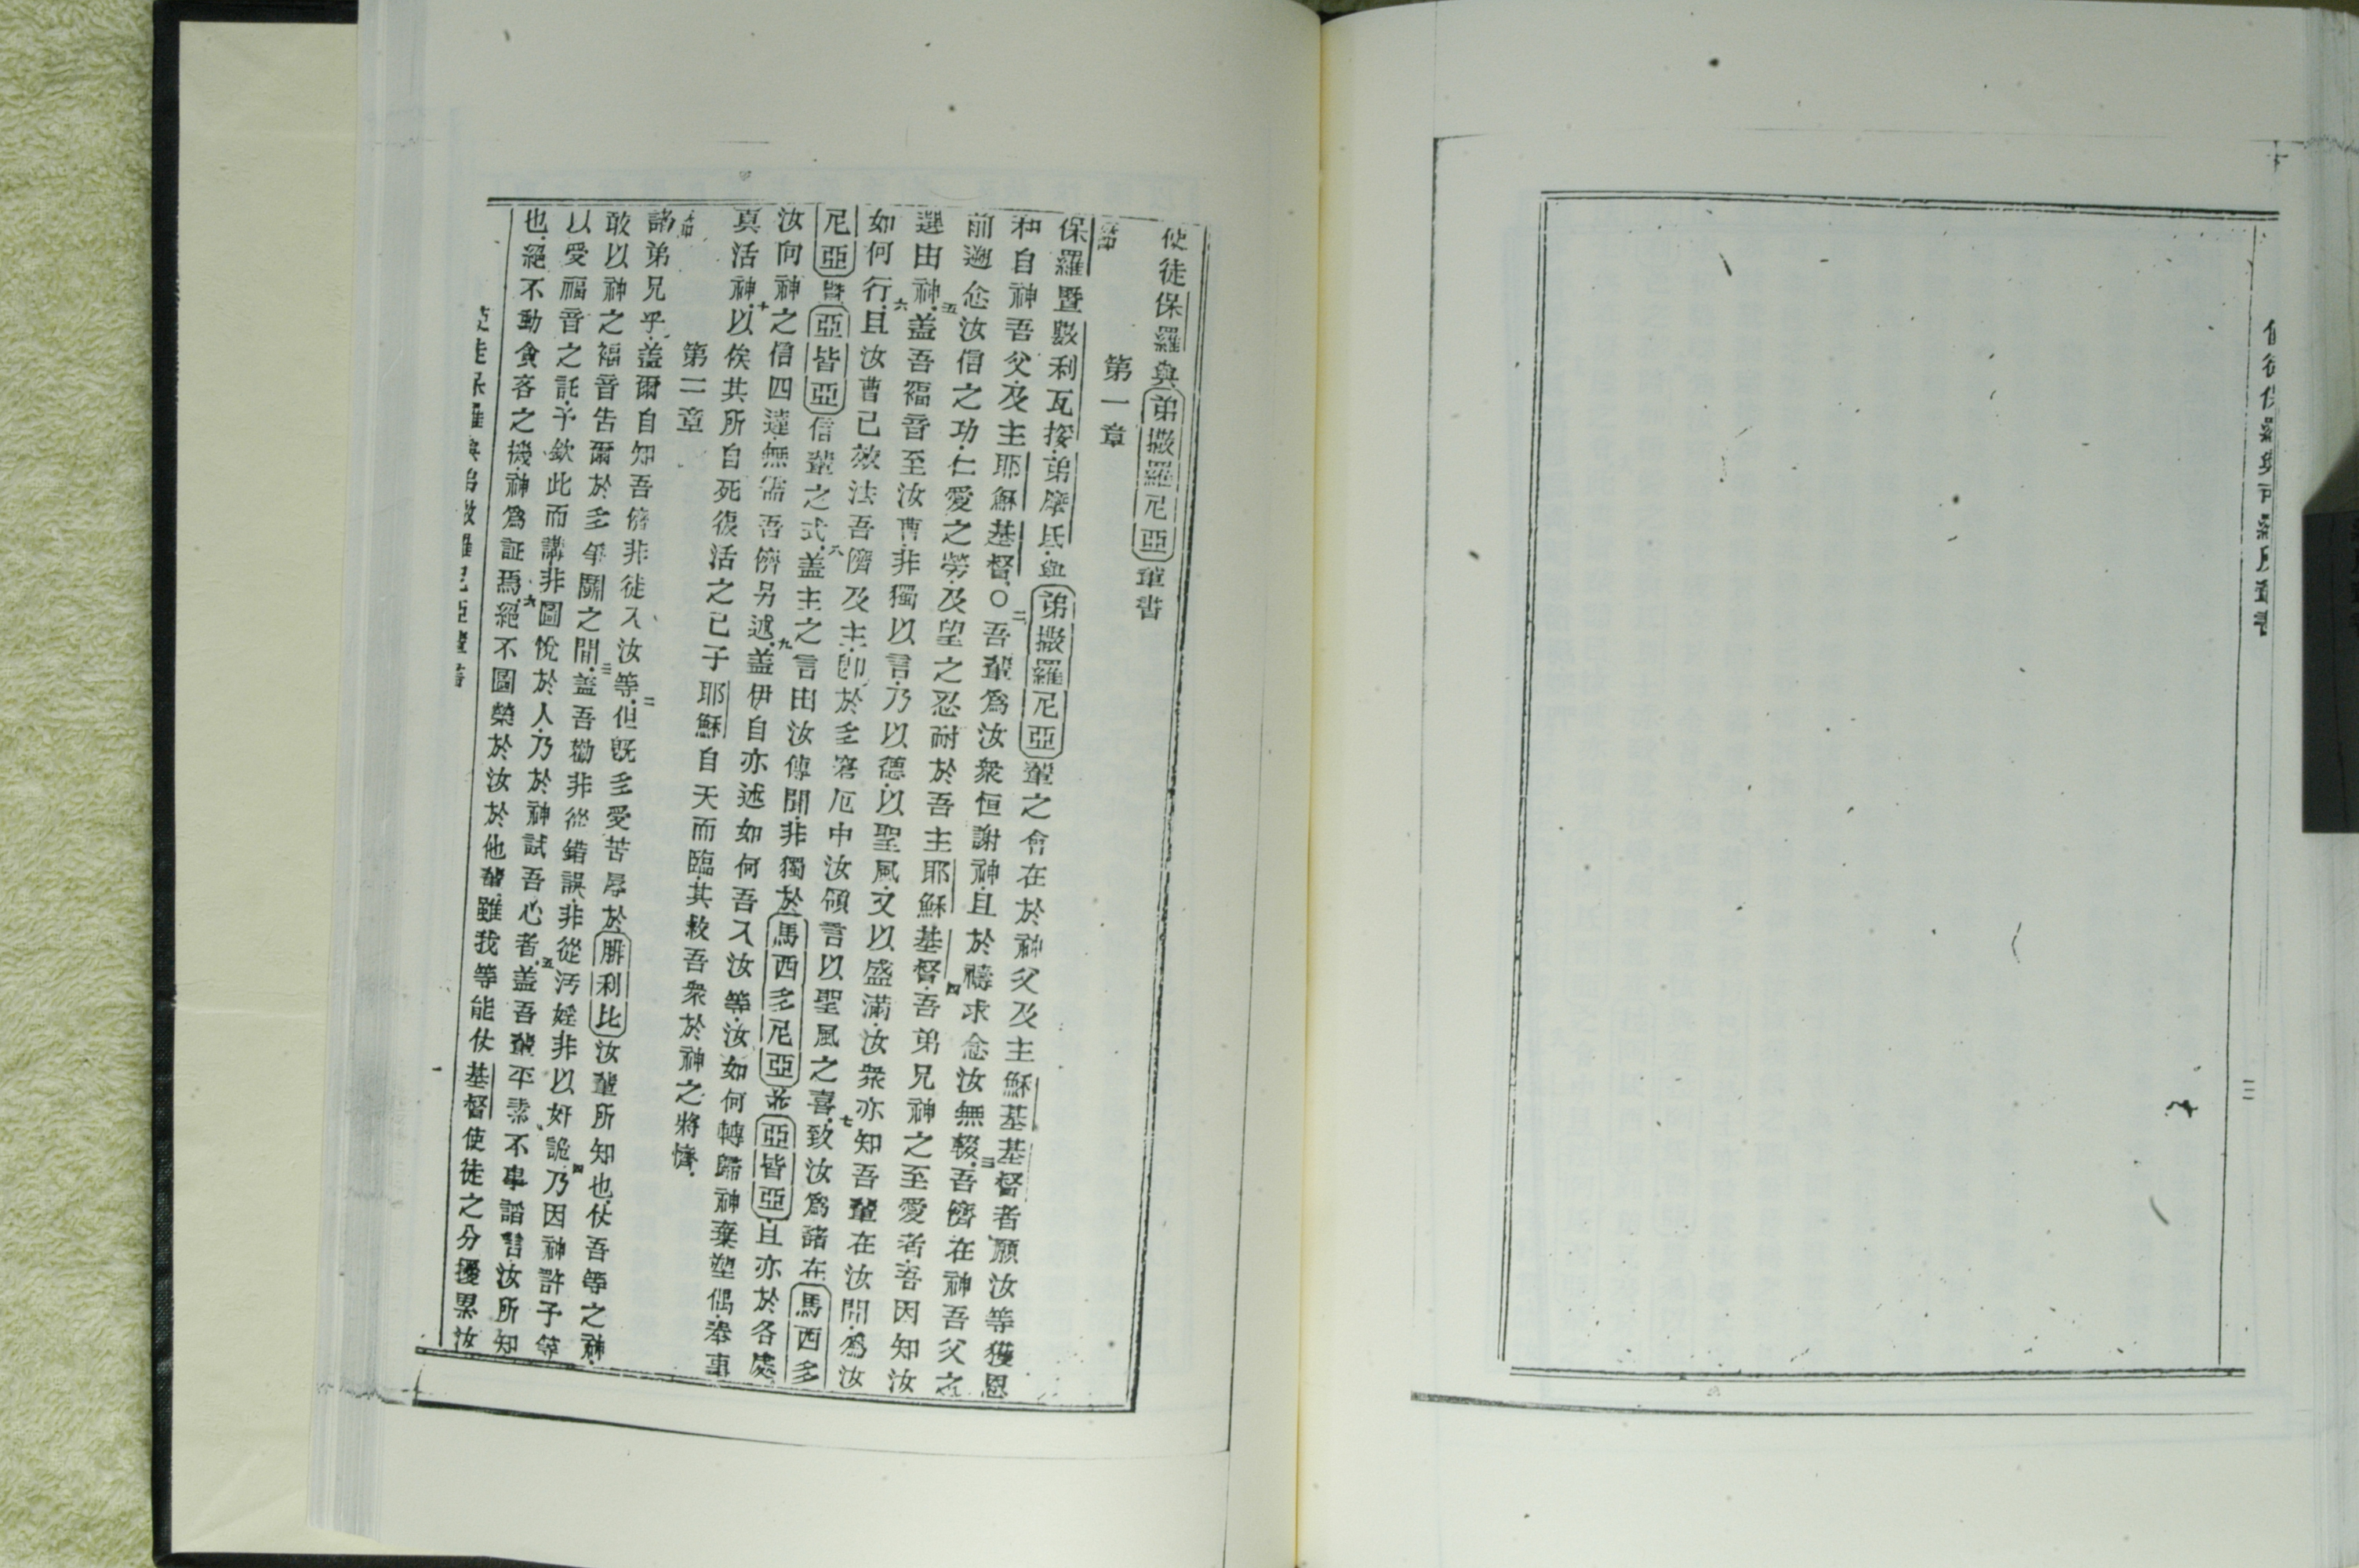 使徒保羅與弟撒羅尼亞輩書
第一章
保羅暨數利瓦按弟摩氐與弟撒羅尼亞輩之會在於神父及主穌基基督者願汝等獲恩
和自神吾父及主耶穌基督○二吾輩為汝眾恒謝神且於禱求念汝無輟三吾儕在神吾父之
前邇念汝信之功仁愛之勞及望之忍耐於吾主耶穌基督四吾弟兄神之至愛者吾因知汝
選由神五蓋吾福音至汝曹非獨以言乃以德以聖風又以盛滿汝眾亦知吾輩在汝間為汝
如何行六且汝曹己效法吾儕及主即於多窘厄中汝領言以聖風之喜七致汝為諸在馬西多
尼亞暨亞皆亞信輩之式八蓋主之言由汝傳聞非獨於馬西多尼亞並亞皆亞且亦於各處
汝向神之信四達無需吾儕另述九蓋伊自亦述如何吾入汝等汝如何轉歸神棄塑偶奉事
真活神十以俟其所自死復活之己子耶穌自天而臨其救吾眾於神之將懠
第二章
諸弟兄乎蓋爾自知吾儕非徒入汝等二但既多受苦辱於腓利比汝輩所知也仗吾等之神
敢以神之福音告爾於多爭鬭之間三蓋吾勸非從錯誤非從污婬非以奸詭四乃因神許予等
以受福音之託予欽此而講非圖悅於人乃於神試吾心者五蓋吾輩平素不事諂言汝所知
也絕不動貪吝之機神為証焉六絕不圖榮於汝於他輩雖我等能仗基督使徒之分擾累汝
使徒保羅與弟撒羅尼亞輩書
使徒保羅與可羅所輩書
三